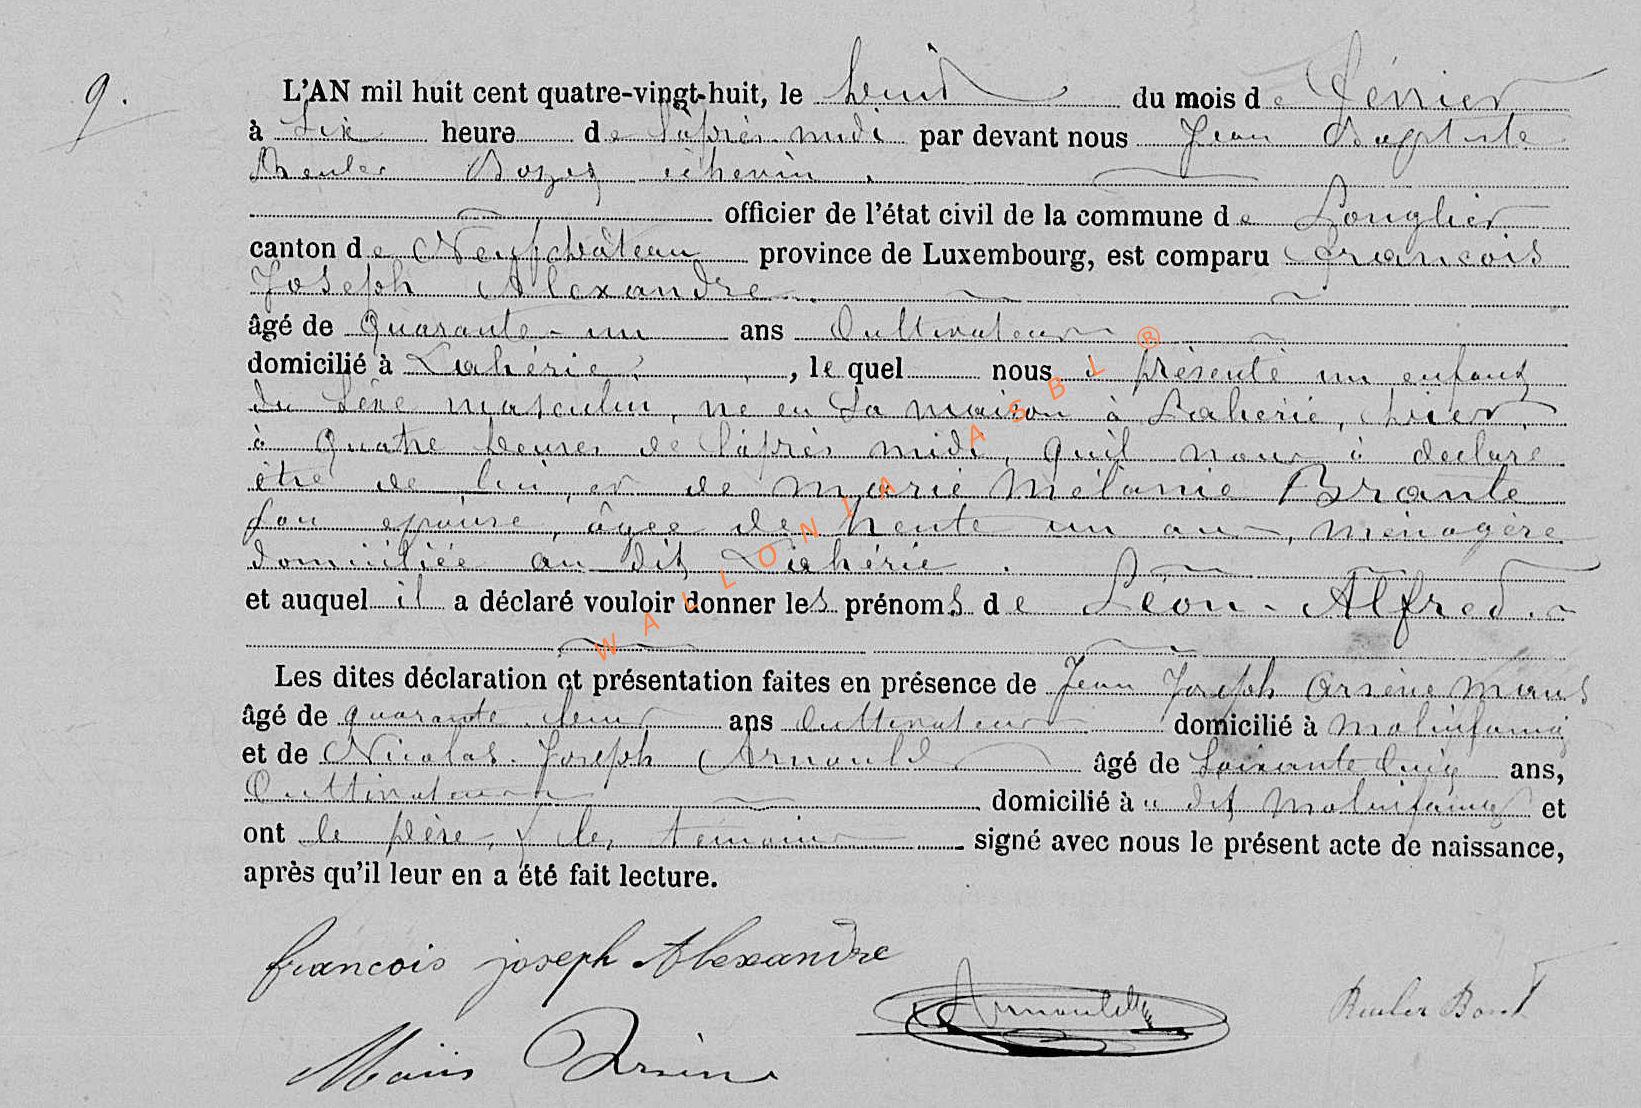 9.
L'AN mil huit cent quatre-vingt-huit, le huit du mois de Février
à six heure de l'après midi par devant nous Jean Baptiste
échevin
officier de l'état civil de la commune de Longlier
canton de Neufchâteau province de Luxembourg, est comparu François
Joseph Alexandre
âgé de Quarante-un ans Cultivateur
domicilié à Lahérie, le quel nous a présenté un enfant
du sexe masculin, né en sa maison à Laherie, hier,
à quatre heures de l'après midi, qu'il nous à déclaré
être de lui, et de marie Mélanie Brante
son épouse, âgée de trente un ans, ménagère
domiciliée au dit Lahérie.
et auquel il a déclaré vouloir donner les prénoms de Léon-Alfred.
Les dites déclaration et présentation faites en présence de Jean Joseph Arsène Maus
âgé de quarante deux ans Cultivateur domicilié à Molinfaing
et de Nicolas Joseph Arnould âgé de Soixante cinq ans,
Cultivateur domicilié à u dit Molinfaing et
ont le père, & les témoins signé avec nous le présent acte de naissance,
après qu'il leur en a été fait lecture.
françois joseph Alexandre
Arnould
Maus Arsène
WALLONIA ASBL ®